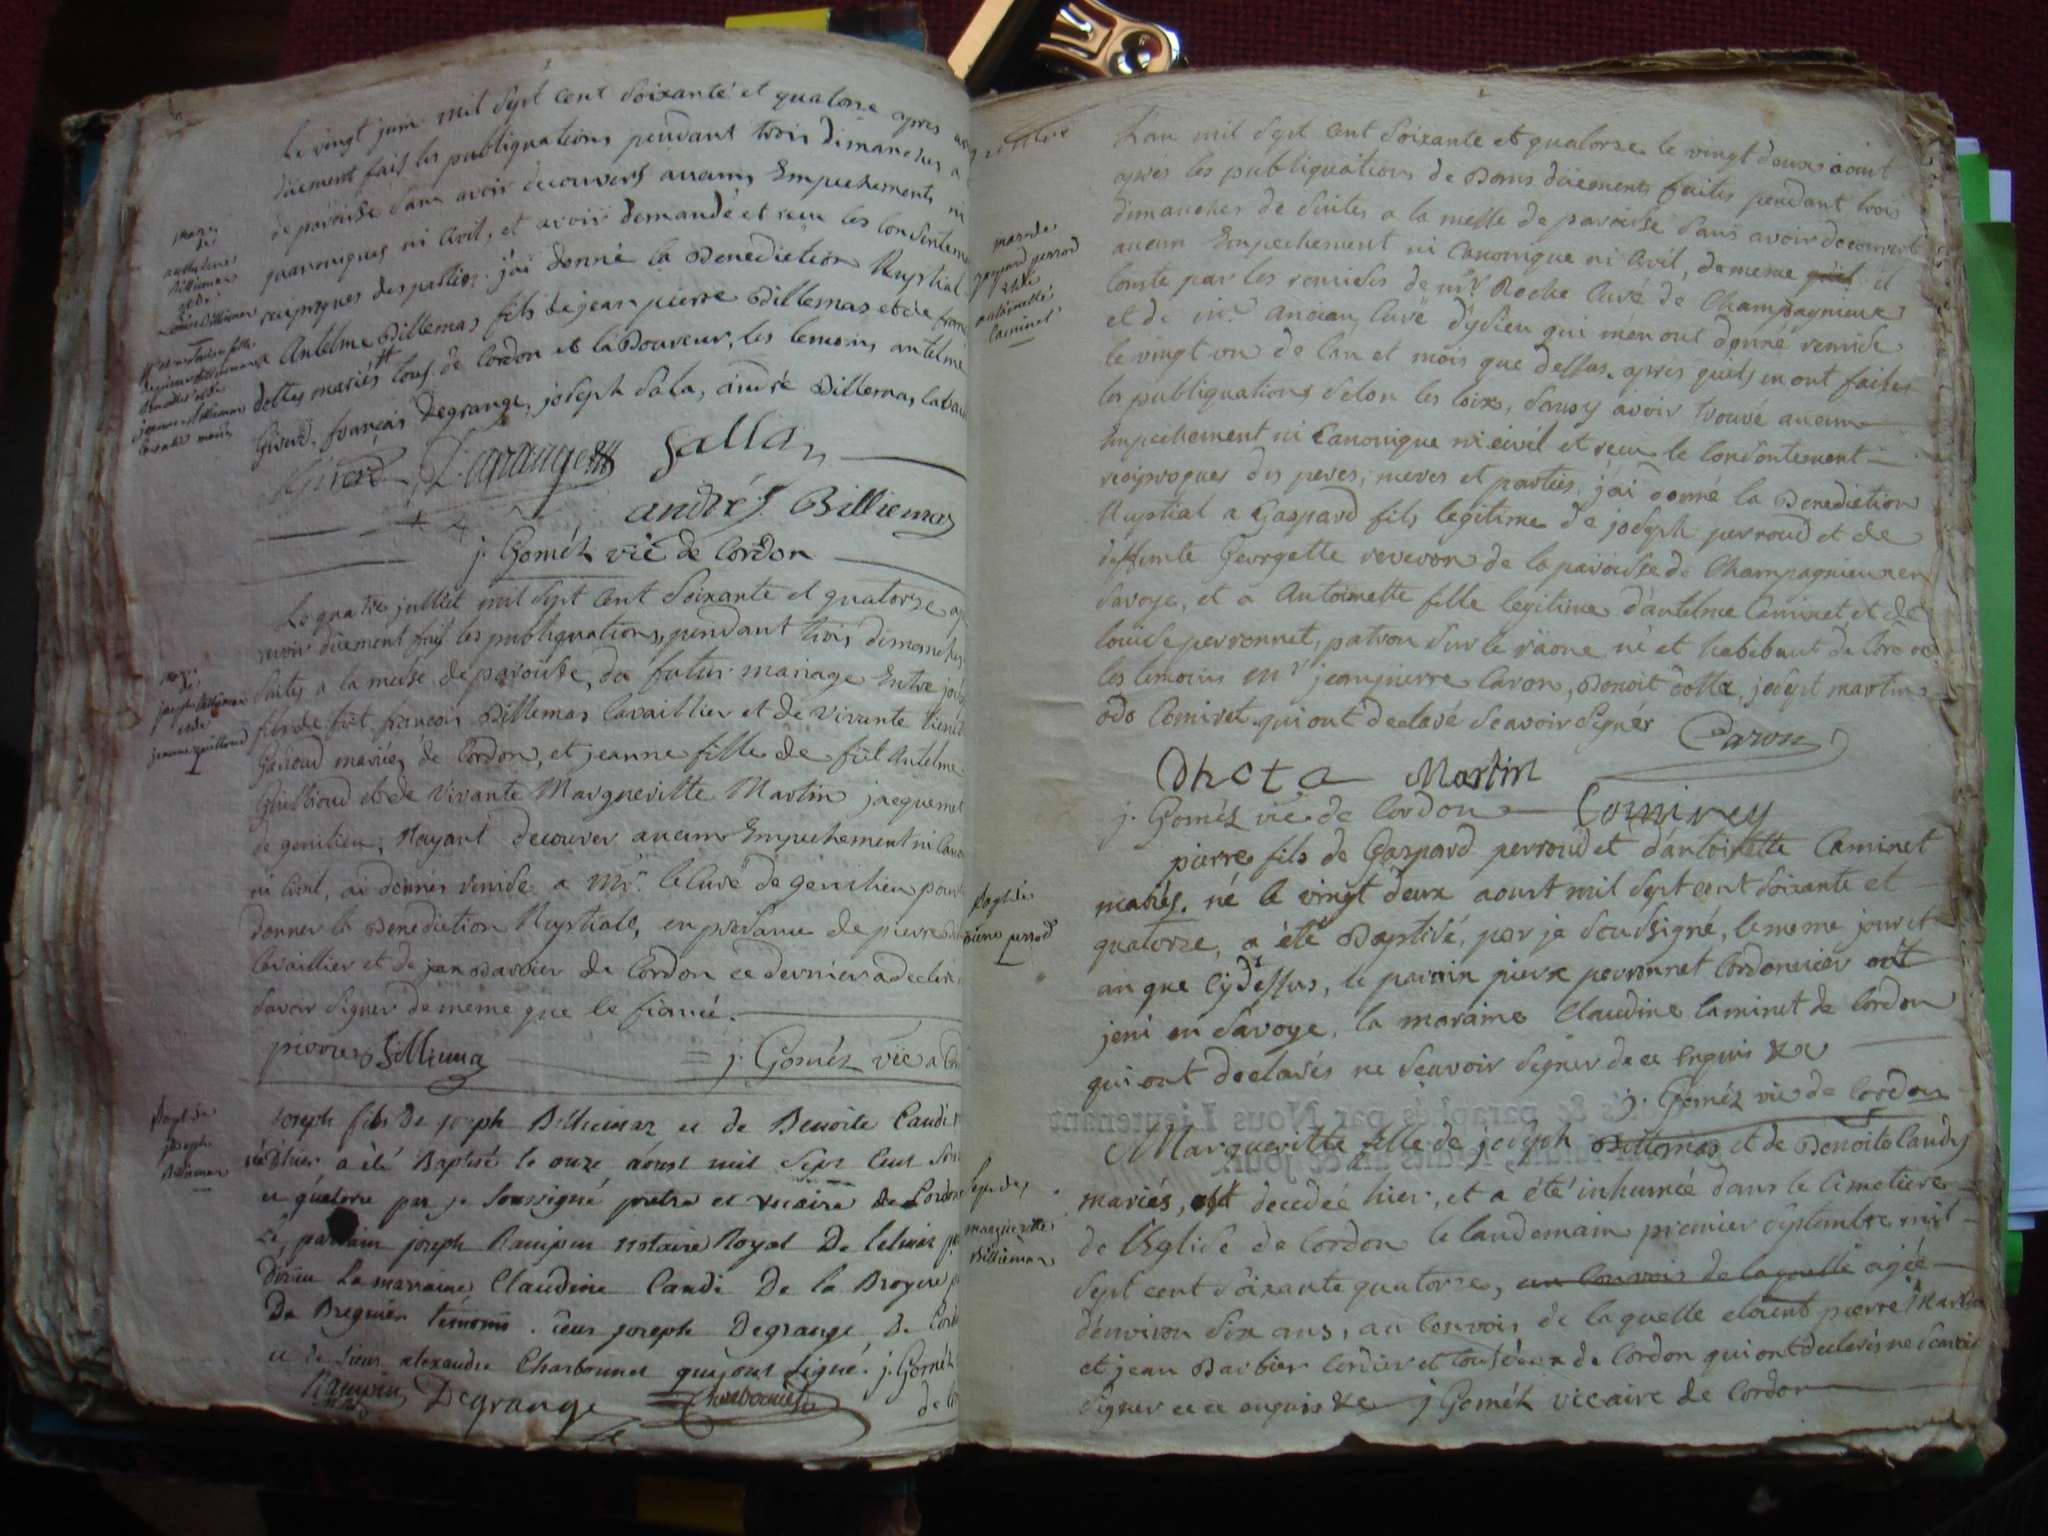 Le vingt juin mil sept cent soixante et quatorse apres
düement fait les publiquations pendant trois dimanches
de paroisse sans avoir decouvert aucuns Empechements ni
quanoniques ni Civil, et avoir demandé et recu les Consenteme
reciproques des parties, j'ai donné la Benediction Nuptial
Antelme Billemas fils de jean pierre Billemas et de
dottes mariés tous de Cordon et laboureur, les temoins antelme
Giroud, françois Degrange, joseph Sala, andré Billemas
Giroud Degrange Salla
andré Billiemaz
j. Goméz vic de Cordon
Le quatre juillet mil sept cent soixante et quatorse
avoir düement fait les publiquations, pendant trois dimanches
Suites a la messe de paroisse, du futur mariage Entre
fils de fût françois Billemas Cavaillier et de Vivante
mariés de Cordon, et jeanne fille de fût Antelme
Guillioud et de Vivante Margueritte Martin jacquemet
de genilieu, Nayant decouver aucuns Empechement ni
ni Civil, ai donnés remise a Mr. le Curé de genilieu pour
donner la Benediction Nuptiale, en presance de pierre
Cavaillier et de jean Barbier de Cordon ce dernier a
Savoir signer de même que le fiancé.
pierre Billiema j. Goméz vic
Bapt. de
joseph
Billiemas
Joseph fils de joseph Billiemaz et de Benoite Candi
né d'hier a été Baptisé le onze aoust mil sept cent
et quatorse par je soussigné pretre et vicaire de Cordon
Le parrain joseph Raupin notaire Royal De
La marraine Claudine Candi De la Broyere
De Bregnier temoins sieur joseph Degrange De
et de sieur alexandre Charbonnet qui ont signé. j. Goméz
Degrange Charbonnet
L'an mil sept cent soixante et quatorse le vingt deux aoust
aprés les publiquations de Bans düements faites pendant trois
dimanches de Suites a la messe de paroisse sans avoir decouvert
aucun Empechement ni Canonique ni Civil, de meme il
Conste par les remises de mr. Roche Curé de Champagnieux
et de mr. ancian Curé d'ysieu qui m'en ont donné remise
le vingt un de l'an et mois que dessus. apres quils en ont faites
les publiquations selon les loix, sans y avoir trouvé aucun
Empechement ni Canonique ni civil et recu le Consentement
reciproques des peres, meres et parties, j'ai donné la Benediction
Nuptial a Gaspard fils legitime de joseph perroud et de
deffunte Georgette reveron de la paroisse de Champagnieux en
Savoye, et a Antoinette fille legitime d'antelme Caminet et de
louise perronnet, patron sur le rône né et habibant de Cordon
les temoins mr jeanpierre Caron, Benoit dotta, josept martin
odo Comiret qui ont declaré Scavoir Signér Caron
Dhota Martin
j. Goméz vic de Cordon Comirey
Bapt. de
pierre perrod
pierre fils de Gaspard perroud et d'antoinette Caminet
mariés. né le vingt deux aoust mil sept cent soixante et
quatorze, a été Baptisé, par je soussigné, le meme jour et
an que Cy dessus, le parrin pierre perronnet Cordonnier
jeni en Savoye, la maraine Claudine Caminet de Cordon
qui ont declarés ne Scavoir Signer de ce Enquis &c
j. Goméz vic de Cordon
margueritte
Billiemaz
Margueritte fille de joseph Billemas et de Benoite Candy
mariés, est decedée hier, et a été inhumée dans le Cimetiere
de l'Eglise de Cordon le landemain premier Septembre mil
sept cent soixante quatorze, au Convois de laquelle agée
d'environ six ans, au Convois de laquelle etoient pierre Martin
et jean Barbier Cordier et tous deux de Cordon qui ont declarés ne Scavoir
Signer de ce enquis &c j Goméz vicaire de Cordon